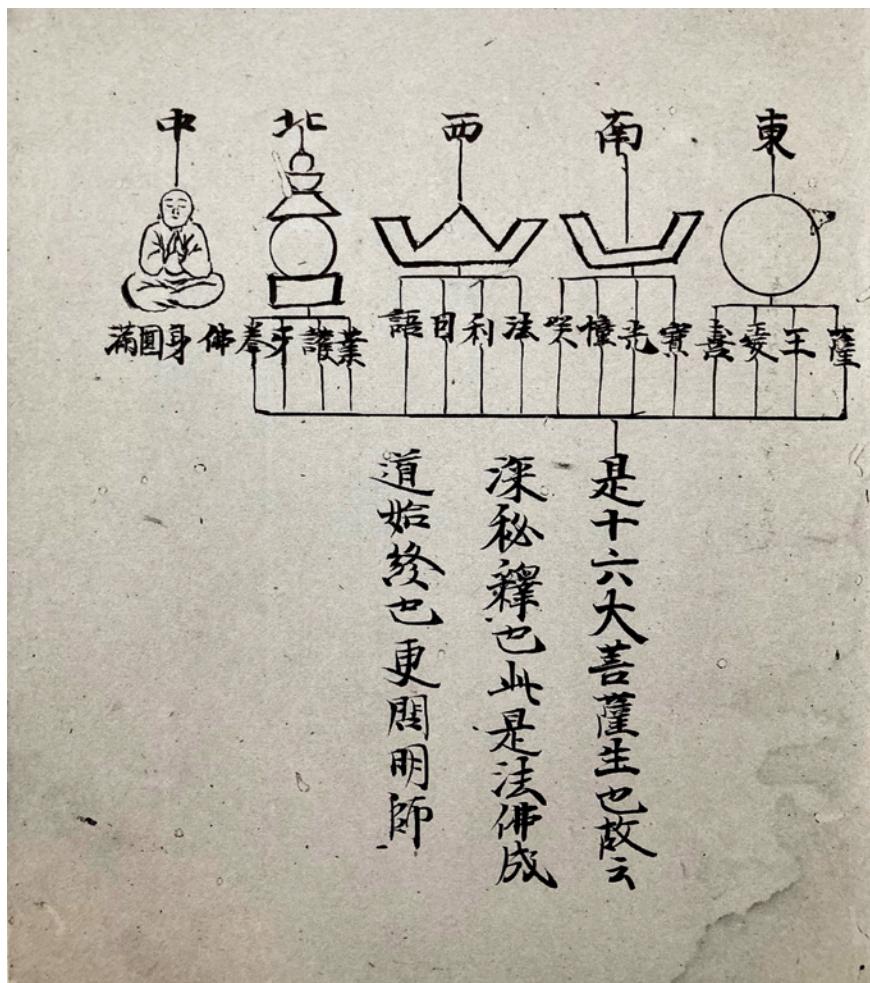 東 南 西 北 中
薩王愛喜 寶光幢咲 法利因語 業護牙拳 佛身圓滿
是十六大菩薩生也故云
深秘釋也此是法佛成
道始終也更問明師